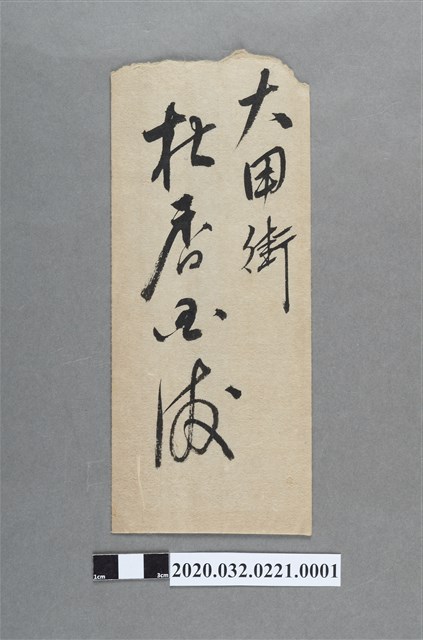 大甲街
杜香国
1cm 3cm
2020.032.0221.0001